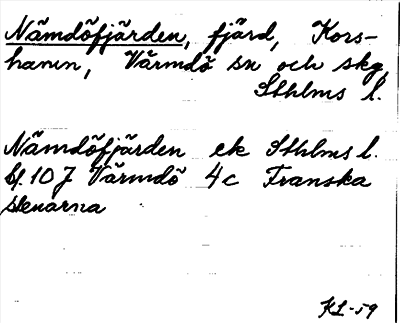 Nämdöfjärden, fjärd, Kors-
hamn, Värmdö sn och skg,
Sthlms l.
Nämdöfjärden ek Sthlms l.
bl. 10 J Värmdö 4c Franska
stenarna
KL-59